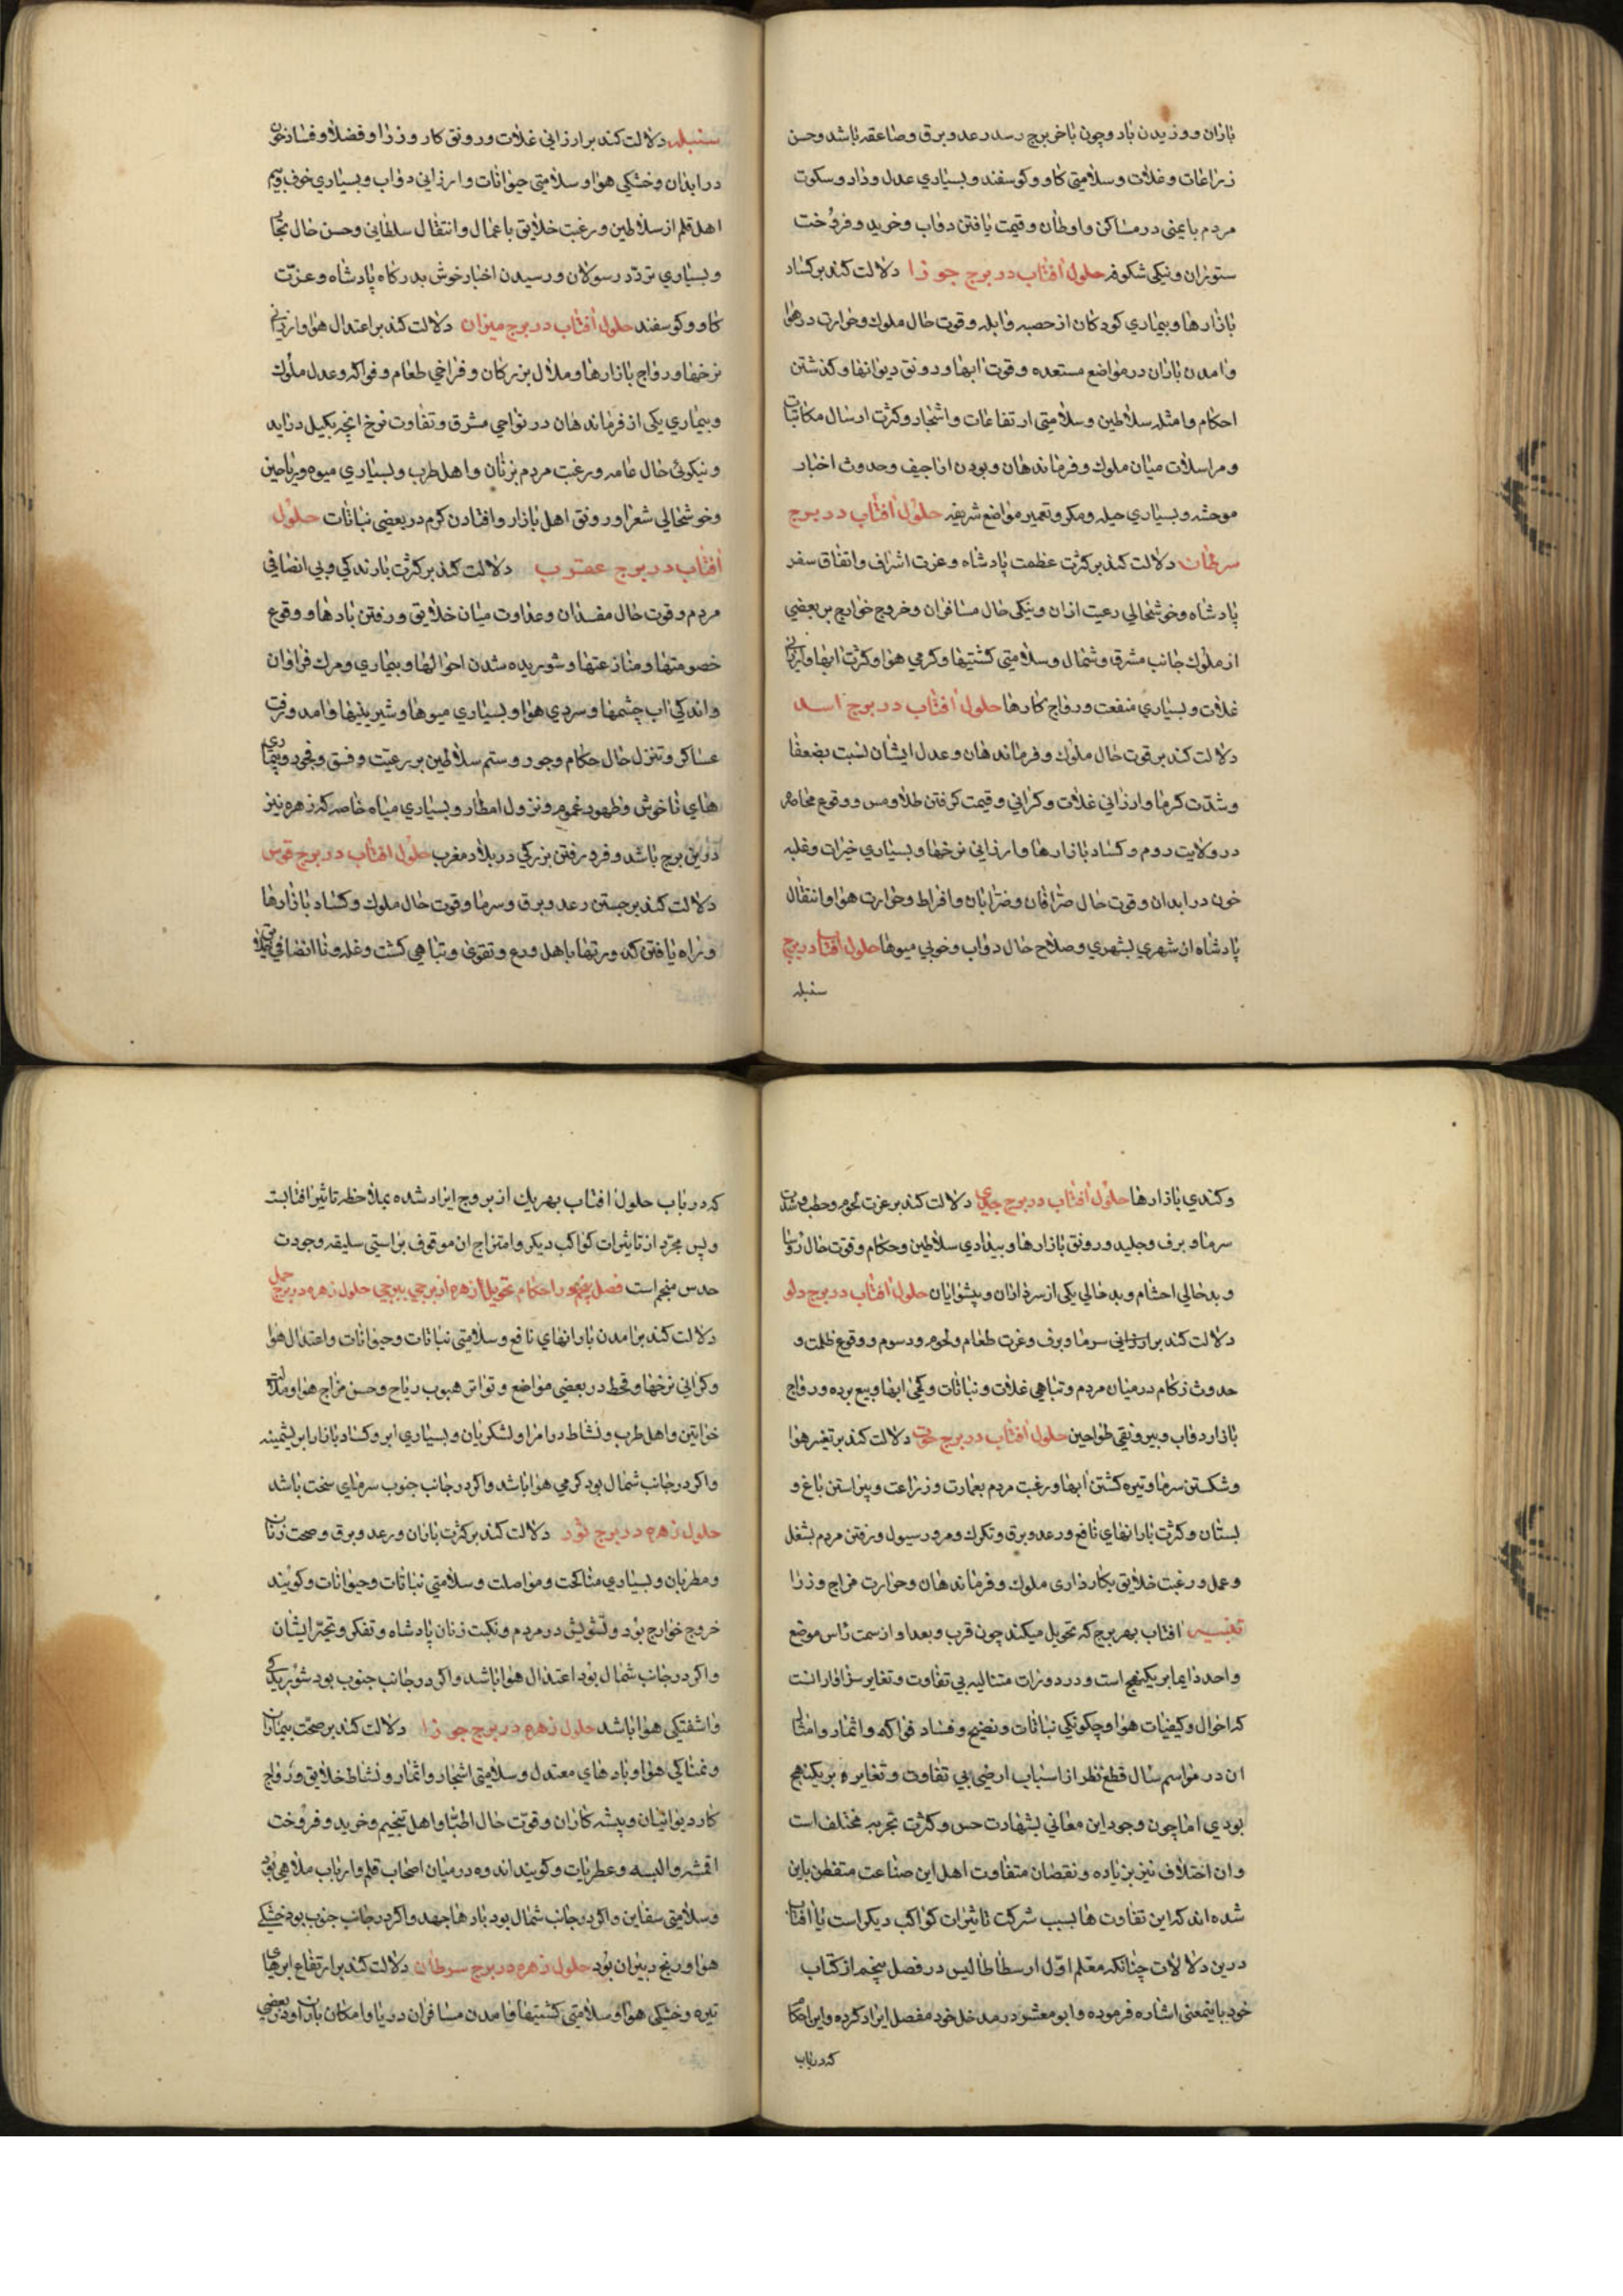 باران و وزیدن باد و چون باخر برج رسد رعد و برق و صاعقه باشد و حسن
زراعات و غلات و سلامتی کاو و کوسفند و بسیاری عدل و داد و سکوت
مردم بایمنی در مساکن و اوطان و قیمت یافتن دواب و خرید و فروخت
ستوران و نیکی شکوفه حلول افتاب در برج جوزا دلالت کند بر کساد
بازارها و بیماری کودکان از حصبه و ابله و قوت حال ملوک و حرارت در هوا
و امدن باران در مواضع مستعده و قوت ابها و رونق دیوانها و کذشتن
احکام و امثله سلاطین و سلامتی ارتفاعات و اشجار و کثرت ارسال مکاتبات
و مراسلات میان ملوک و فرماندهان و بودن اراجیف و حدوث اخبار
موحشه و بسیاری حیله و مکر و تعمیر مواضع شریفه حلول افتاب در برج
سرطان دلالت کند بر کثرت عظمت پادشاه و عزت اشراف و اتفاق سفر
پادشاه و خوشحالی رعیت ازان و نیکی حال مسافران و خروج خوارج بر بعضی
از ملوک جانب مشرق و شمال و سلامتی کشتیها و کرمی هوا و کثرت ابها و ارزانی
غلات و بسیاری منفعت و رواج کارها حلول افتاب در برج اسد
دلالت کند بر قوت حال ملوک و فرماندهان و عدل ایشان نسبت بضعفا
و شدت کرما و ارزانی غلات و کرانی و قیمت کرفتن طلا و مس و وقوع مخاصمه
در ولایت روم و کساد بازارها و ارزانی نرخها و بسیاری خیرات و غلبه
خون در ابدان و قوت حال صرافان و ضرابان و افراط و حرارت هوا و انتقال
پادشاه از شهری بشهری و صلاح حال دواب و خوبی میوها حلول افتاب در برج
سنبله
سنبله دلالت کند بر ارزانی غلات و رونق کار وزرا و فضلا و فساد خون
در ابدان و خشکی هوا و سلامتی حیوانات و ارزانی دواب و بسیاری خوف و بیم
اهل قلم از سلاطین و رغبت خلایق باعمال و انتقال سلطانی و حسن حال تجار
و بسیاری تردد رسولان و رسیدن اخبار خوش بدرکاه پادشاه و عزت
کاو و کوسفند حلول افتاب در برج میزان دلالت کند بر اعتدال هوا و ارزانی
نرخها و رواج بازارها و ملال بزرکان و فراخی طعام و فواکه و عدل ملوک
و بیماری یکی از فرماندهان در نواحی مشرق و تفاوت نرخ انچه بکیل دراید
و نیکوئی حال عامه و رغبت مردم بزنان و اهل طرب و بسیاری میوه و ریاحین
و خوشحالی شعرا و رونق اهل بازار و افتادن کرم در بعضی نباتات حلول
افتاب در برج عقرب دلالت کند بر کثرت بارندکی و بی انصافی
مردم و قوت حال مفسدان و عداوت میان خلایق و رفتن بادها و وقوع
خصومتها و منازعتها و شوریده شدن احوالها و بیماری و مرک فراوان
و اندکی اب چشمها و سردی هوا و بسیاری میوها و شیرینیها و امد و رفت
عساکر و تنزل حال حکام و جور و ستم سلاطین بر رعیت و فسق و فجور و بیماری
های ناخوش و ظهور غموم و نزول امطار و بسیاری میاه خاصه که زهره نیز
درین برج باشد و فرو رفتن بزرکی در بلاد مغرب حلول افتاب در برج قوس
دلالت کند بر جستن رعد و برق و سرما و قوت حال ملوک و کساد بازارها
و راه یافتن کدورتها باهل ورع و تقوی و تباهی کشت و غله و ناانصافی خلایق
و کندی بازارها حلول افتاب در برج جدی دلالت کند بر عزت لحوم و حطب و شدت
سرما و برف و جلید و رونق بازارها و بیدادی سلاطین و حکام و قوت حال روسا
و بدحالی احشام و بدحالی یکی از سرداران و پیشوایان حلول افتاب در برج دلو
دلالت کند بر ارزانی سرما و برف و عزت طعام و لحوم و دسوم و وقوع ظلمت و
حدوث زکام در میان مردم و تباهی غلات و نباتات و کمی ابها و بیع برده و رواج
بازار دواب و بیرونقی طواحین حلول افتاب در برج حوت دلالت کند بر تغیر هوا
و شکستن سرما و تیره کشتن ابها و رغبت مردم بعمارت و زراعت و پیراستن باغ و
بستان و کثرت بارانهای نافع و رعد و برق و تکرک و مرور سیول و رفتن مردم بشغل
و عمل و رغبت خلایق بکارداری ملوک و فرماندهان و حرارت مزاج وزرا
افتاب بهر برج که تحویل میکند چون قرب و بعد او از سمت راس موضع
واحد دایما بر یکنهج است و در دورات متتالیه بی تفاوت و تغایر سزاوار انست
که احوال و کیفیات هوا و چکونکی نباتات و نضج و فساد فواکه و اثمار و امثال
ان در مواسم سال قطع نظر از اسباب ارضی بی تفاوت و تغایر بر یکنهج
بودی اما چون وجود این معانی بشهادت حس و کثرت تجربه مختلف است
و ان اختلاف نیز بزیاده و نقصان متفاوت اهل این صناعت متفطن باین
شده اند که این تفاوت ها بسبب شرکت تاثیرات کواکب دیکر است با افتاب
درین دلالات چنانکه معلم اول ارسطاطالیس در فصل پنجم از کتاب
خود باینمعنی اشاره فرموده و ابو معشر در مدخل خود مفصل ایراد کرده و این احکام
که در باب
که در باب حلول افتاب بهر یک از بروج ایراد شده بملاحظه تاثیر افتابست
و بس مجرد از تاثیرات کواکب دیکر و امتزاج ان موقوف براستی سلیقه و جودت
حدس منجم است فصل پنجم در احکام تحویل زهره از برجی ببرجی حلول زهره در برج حمل
دلالت کند بر امدن بارانهای نافع و سلامتی نباتات و حیوانات و اعتدال هوا
و کرانی نرخها و قحط در بعضی مواضع و تواتر هبوب ریاح و حسن مزاج هوا و ملالت
خواتین و اهل طرب و نشاط در امرا و لشکریان و بسیاری ابر و کساد بازار ابریشمینه
و اکر در جانب شمال بود کرمی هوا باشد و اکر در جانب جنوب سرمای سخت باشد
حلول زهره در برج ثور دلالت کند بر کثرت باران و رعد و برق و صحت زنان
و مطربان و بسیاری مناکحت و مواصلت و سلامتی نباتات و حیوانات و کویند
خروج خوارج بود و تشویش در مردم و نکبت زنان پادشاه و تفکر و تحیر ایشان
و اکر در جانب شمال بود اعتدال هوا باشد و اکر در جانب جنوب بود شوریدکی
و اشفتکی هوا باشد حلول زهره در برج جوزا دلالت کند بر صحت بیماران
و نمناکی هوا و بادهای معتدل و سلامتی اشجار و اثمار و نشاط خلایق و رواج
کار دیوانیان و پیشه کاران و قوت حال اطبا و اهل تنجیم و خرید و فروخت
اقمشه و البسه و عطریات و کویند اندوه در میان اصحاب قلم و ارباب ملاهی بود
و سلامتی سفاین و اکر در جانب شمال بود بادها جهد و اکر در جانب جنوب بود خشکی
هوا و رنج دبیران بود حلول زهره در برج سرطان دلالت کند بر ارتفاع ابرهای
تیره و خشکی هوا و سلامتی کشتیها و امدن مسافران دریا و امکان باران بود در بعضی